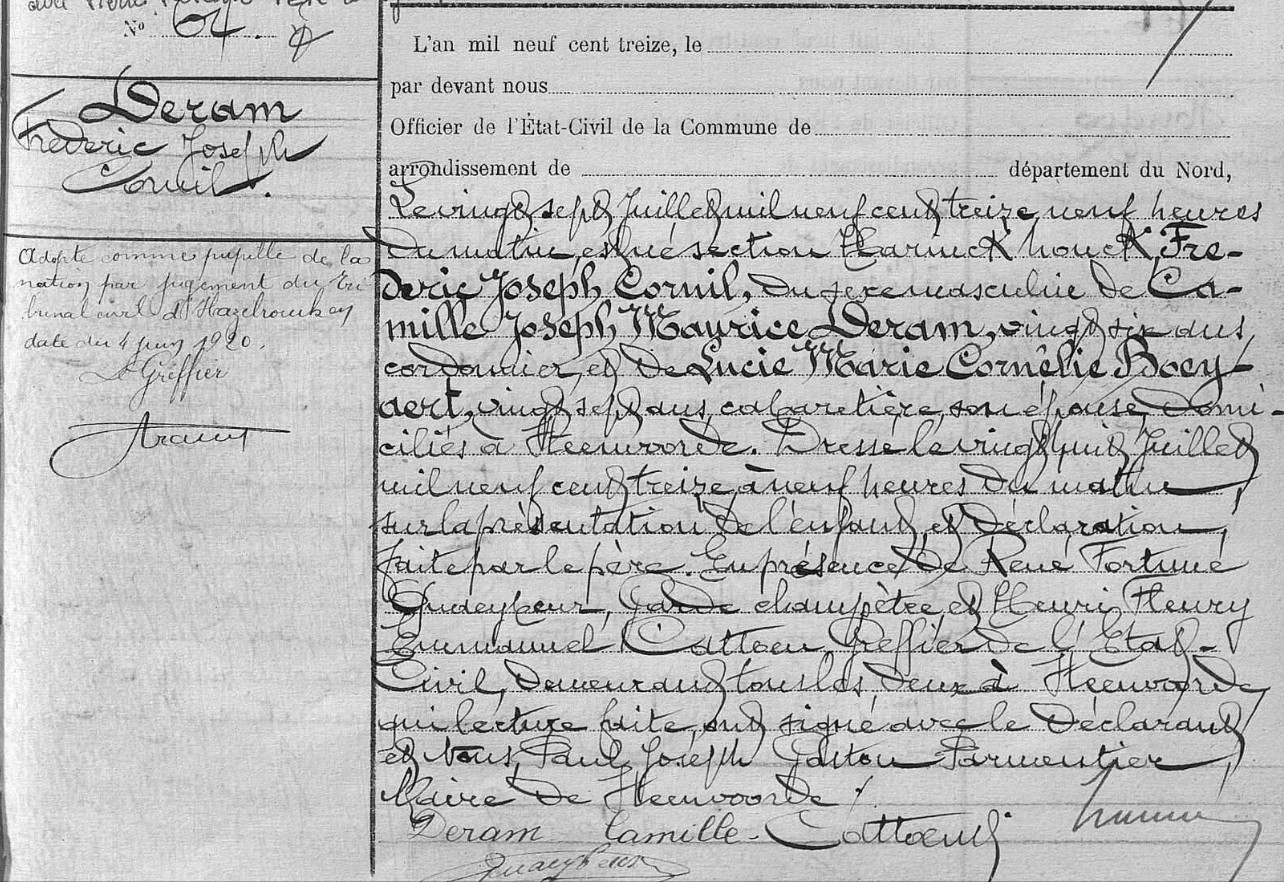 N° 64.
Deram
Frédéric Joseph
Cornil.
Adopté comme pupille de la
nation par jugement du tri
bunal civil d'Hazebrouck en
date du 4 juin 1920.
Le Greffier
L'an mil neuf cent treize, le
par devant nous
Officier de l'État-Civil de la Commune de
arrondissement de département du Nord,
Le vingt sept Juillet mil neuf cent treize neuf heures
du matin, est né section Harinck houck Fré-
déric Joseph Cornil, du sexe masculin de Ca-
mille Joseph Maurice Deram, vingt six ans,
cordonnier, et de Lucie Marie Cornélie Boey-
aert, vingt sept ans, cabaretière, son épouse, domi-
ciliés à Steenvoorde. Dressé le vingt huit Juillet
mil neuf cent treize, à neuf heures du matin,
sur la présentation de l'enfant et déclaration
faite par le père. En présence de René Fortuné
Quaeybeur, Garde champêtre et Henri Fleury
Emmanuel Cattoen, Greffier de l'Etat-
Civil, demeurant tous les deux à Steenvoorde,
qui lecture faite, ont signé avec le Déclarant
et Nous, Paul Joseph Gaston Parmentier,
Maire de Steenvoorde /.
Deram Camille - Cattoen
Quaeybeur